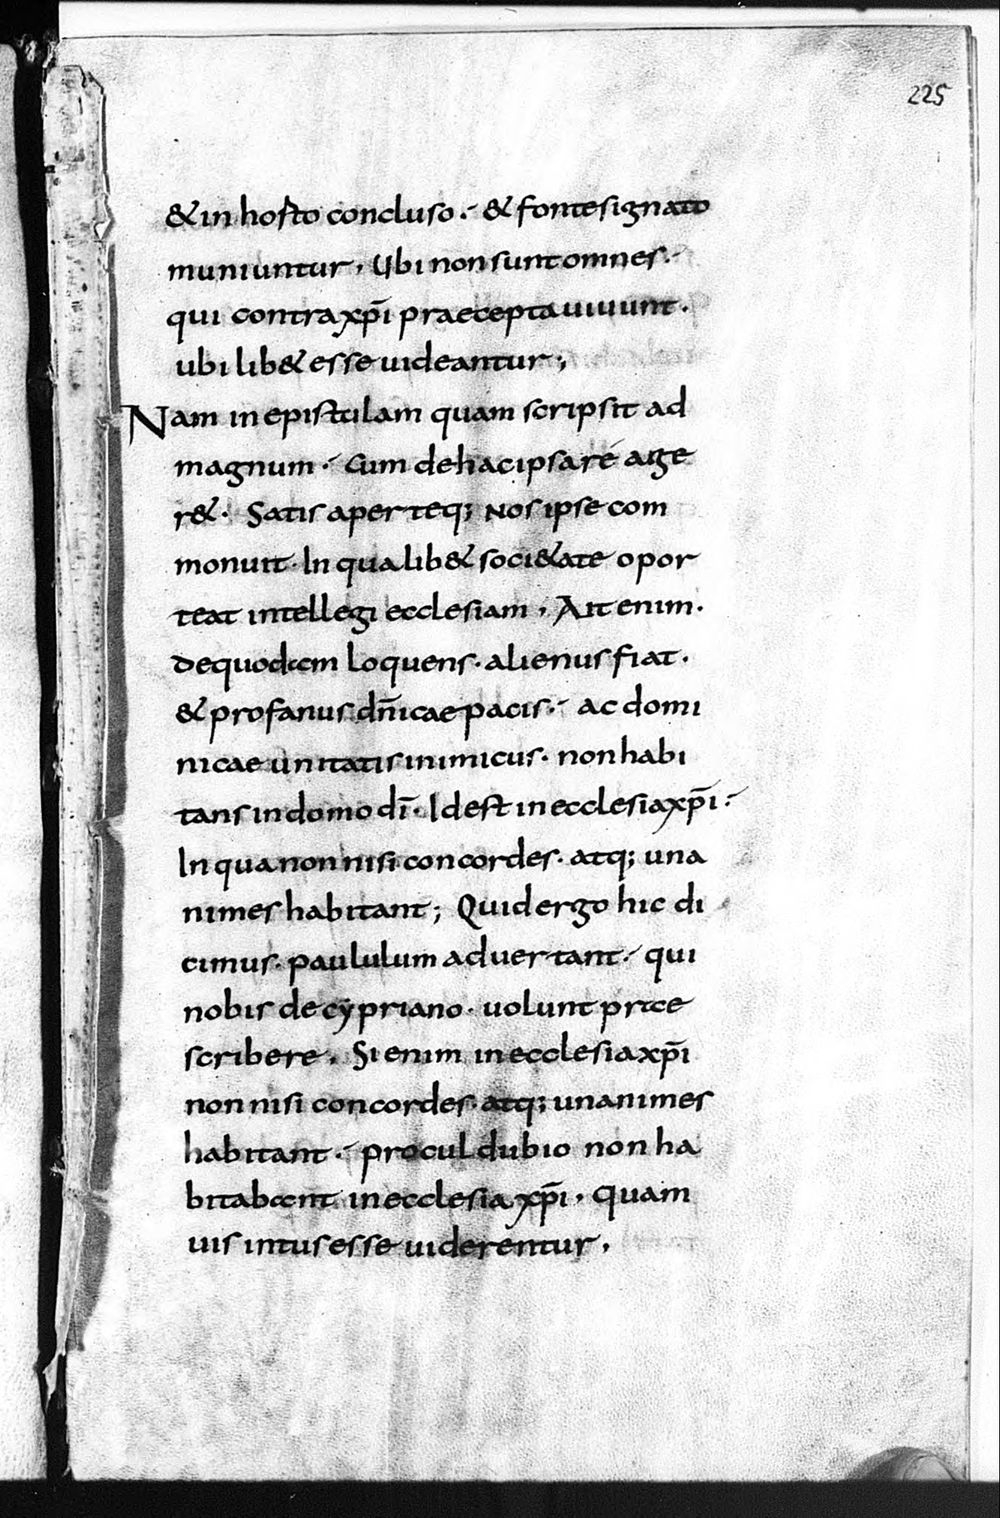 225
& in hosto concluso. & fonte signato
muniuntur, Ubi non sunt omnes.
qui contra xp̄i praecepta uiuunt.
ubi lib& esse uideantur;
Nam in epistulam quam scripsit ad
magnum. Cum de hac ipsa re aige
r&. Satis aperteq; Nos ipse com
monuit. In qua lib& soci&ate opor
teat intellegi ecclesiam, Ait enim.
de quodam loquens. alienus fiat.
& profanus dn̄icae pacis. ac domi
nicae unitatis inimicus. non habi
tans in domo dī. Id est in ecclesia xp̄i.
In qua non nisi concordes. atq; una
nimes habitant; Quid ergo hic di
cimus. paululum aduertant. qui
nobis de cypriano. uolunt prae
scribere. Si enim in ecclesia xp̄i
non nisi concordes. atq; unanimes
habitant. procul dubio non ha
bitabant in ecclesia xp̄i, quam
uis intus esse uiderentur,